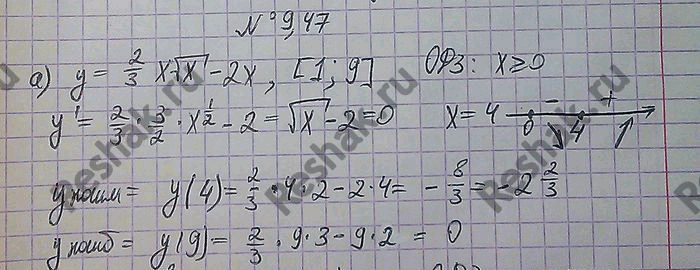 № 9,47
а) y = 2/3 x√x - 2x, [1; 9] ОДЗ: x ≥ 0
y' = 2/3 · 3/2 · x^(1/2) - 2 = √x - 2 = 0 x = 4 - + 0 4
y наим = y(4) = 2/3 · 4 · 2 - 2 · 4 = - 8/3 = -2 2/3
y наиб = y(9) = 2/3 · 9 · 3 - 9 · 2 = 0
Reshak.ru
Reshak.ru
Reshak.ru